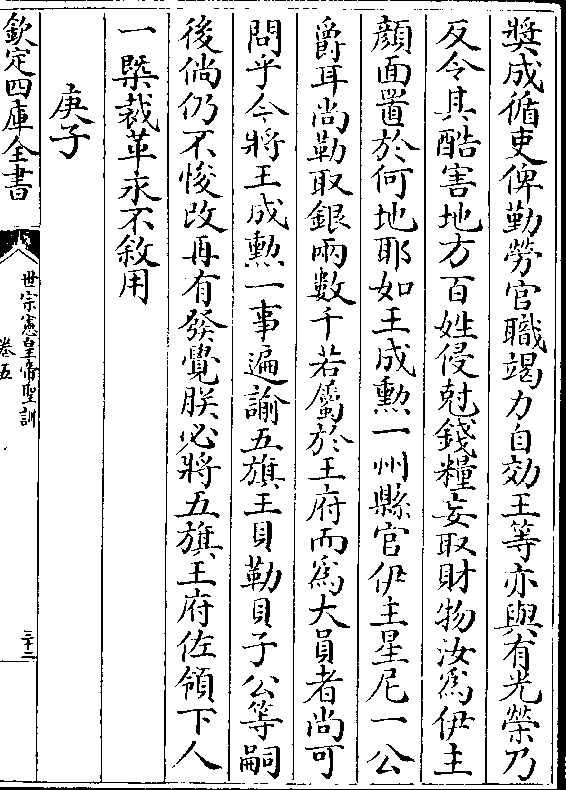 奬成循吏俾勤勞官職竭力自効王等亦與有光榮乃
反令其酷害地方百姓侵尅錢糧妄取財物汝爲伊主
顔面置於何地耶如王成勲一州縣官伊主星尼一公
爵耳尚勒取銀兩數千若屬於王府而爲大員者尚可
問乎今將王成勲一事遍諭五旗王貝勒貝子公等嗣
後倘仍不悛改再有發覺朕必將五旗王府佐領下人
一槩裁革永不敘用
庚子
欽定四庫全書
世宗憲皇帝聖訓
卷五
三十二